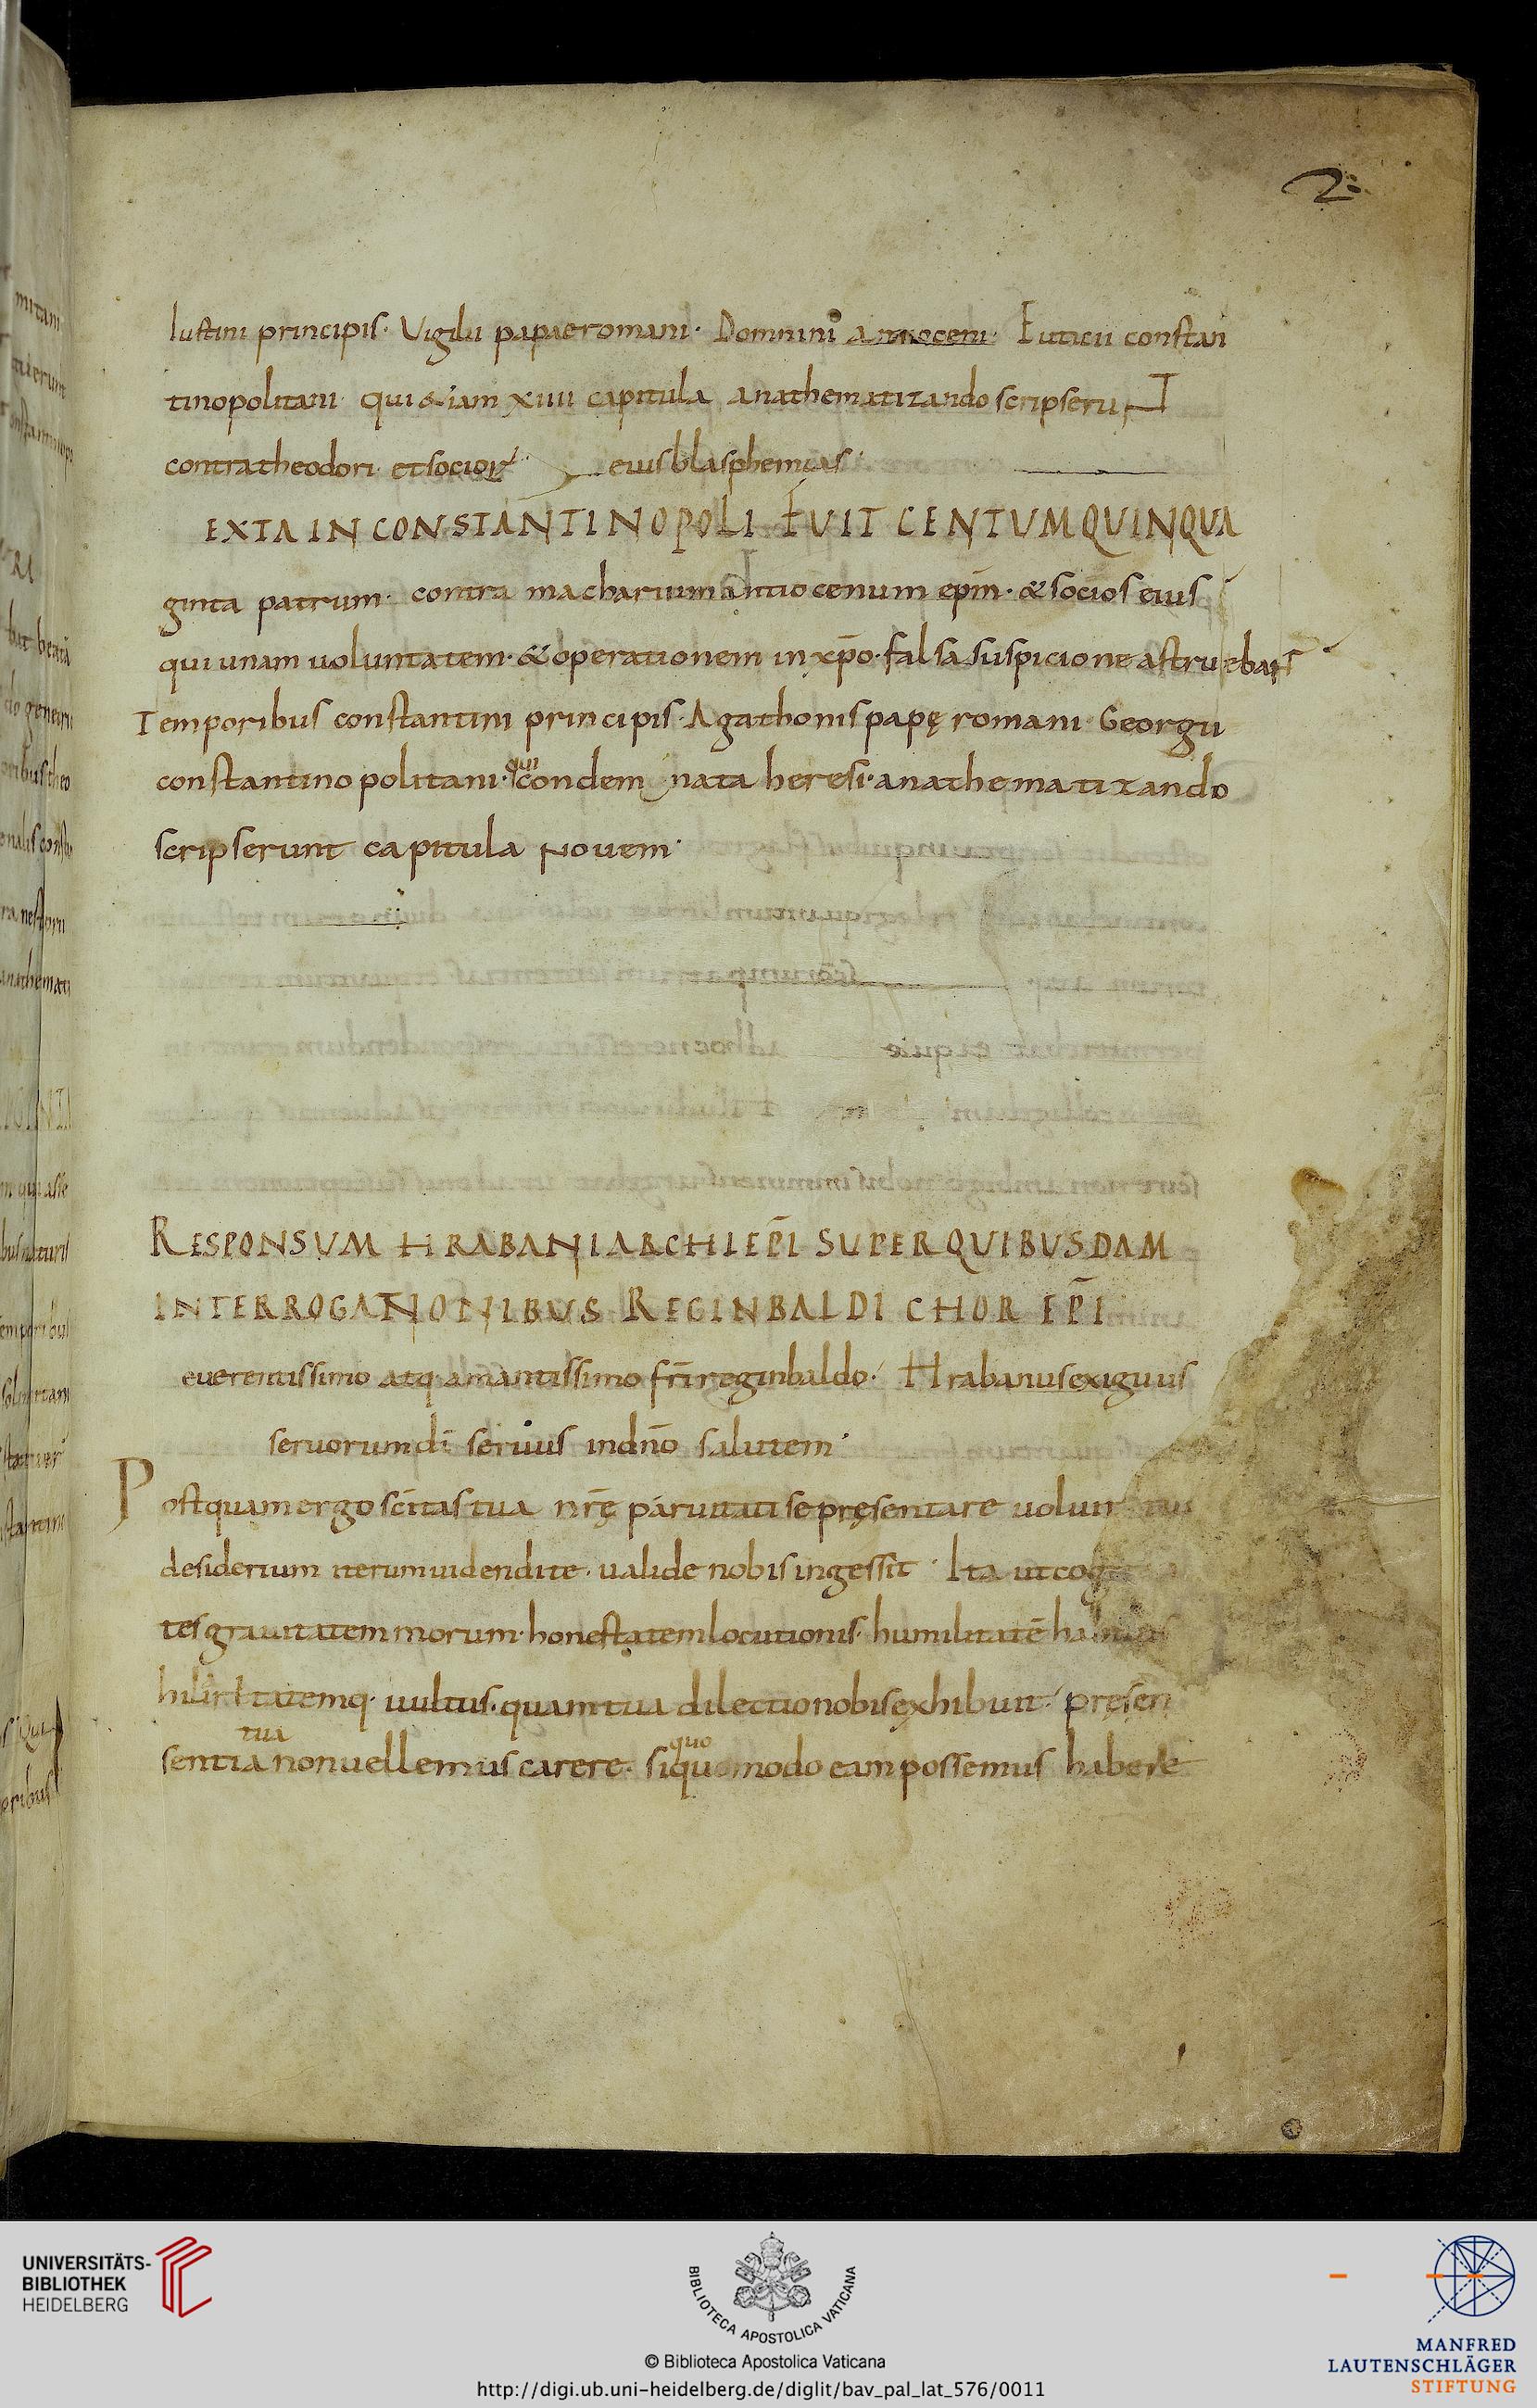 2
Iustini principis· Vigilii papae romani· Domnini antioceni· Euticii constan
tinopolitani· qui &iam xiiii capitula anathematizando scripserunt
contra theodori· et socior̄ eius blasphemias·
EXTA IN CONSTANTINOPOLI FUIT CENTUM QUINQUA
ginta patrum· contra macharium antiocenum ep̄m· & socios eius
qui unam uoluntatem· & operationem in xp̄o· falsa suspicione astruebant
Temporibus constantini principis· Agathonis papę romani· Georgii
constantinopolitani· qui condemnata heresi· anathematizando
scripserunt capitula Novem·
RESPONSUM HRABANI ARCHIEP̄I SUPER QUIBUSDAM
INTERROGATIONIBUS REGINBALDI CHOR EP̄I
euerentissimo atq· amantissimo fr̄i reginbaldo· Hrabanus exiguus
seruorum dī seruus in dn̄o salutem·
Postquam ergo sc̄itas tua nr̄ę paruitati se pręsentare uoluit
desiderium iterum uidendi te· ualide nobis ingessit· Ita ut
tes grauitatem morum· honestatem locutionis· humilitatē
hilaritatemq· uultus· quam tua dilectio nobis exhibuit· pręsen
tua quo
sentia non uellemus carere· si quo modo eam possemus habere
UNIVERSITÄTS-
BIBLIOTHEK
HEIDELBERG
BIBLIOTECA APOSTOLICA VATICANA
© Biblioteca Apostolica Vaticana
http://digi.ub.uni-heidelberg.de/diglit/bav_pal_lat_576/0011
MANFRED
LAUTENSCHLÄGER
STIFTUNG